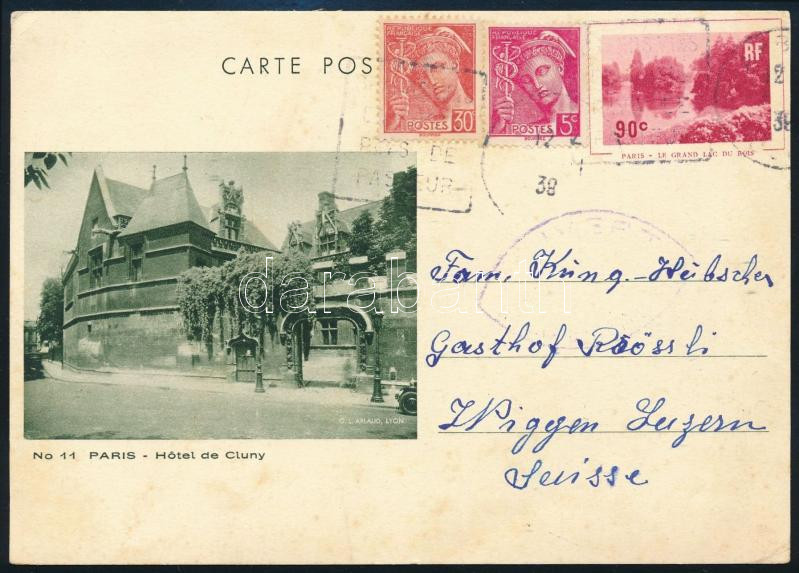 CARTE POS
REPUBLIQUE FRANÇAISE
30c
POSTES
REPUBLIQUE FRANÇAISE
5c
POSTES
RF
90c
PARIS - LE GRAND LAC DU BOIS
PAYS DE
PASTEUR
12
38
12
39
darabanth
G. L. ARLAUD, LYON
No 11 PARIS - Hôtel de Cluny
Fam. Küng-Hübscher
Gasthof Rössli
Wiggen Luzern
Suisse